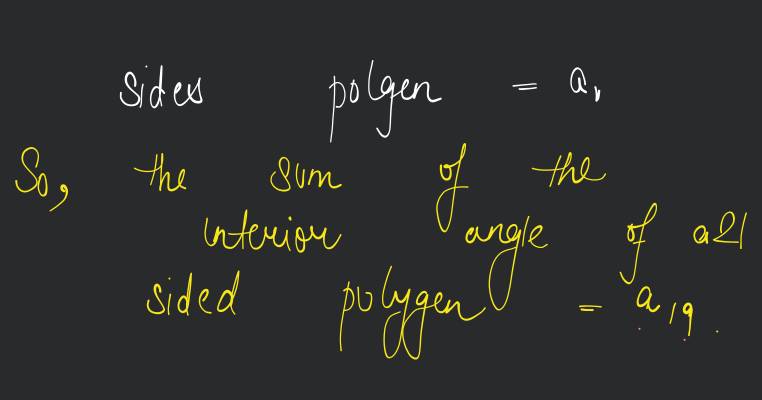 sides polgen = a,
So, the sum of the
interior angle of a 21
sided polygen = a19.